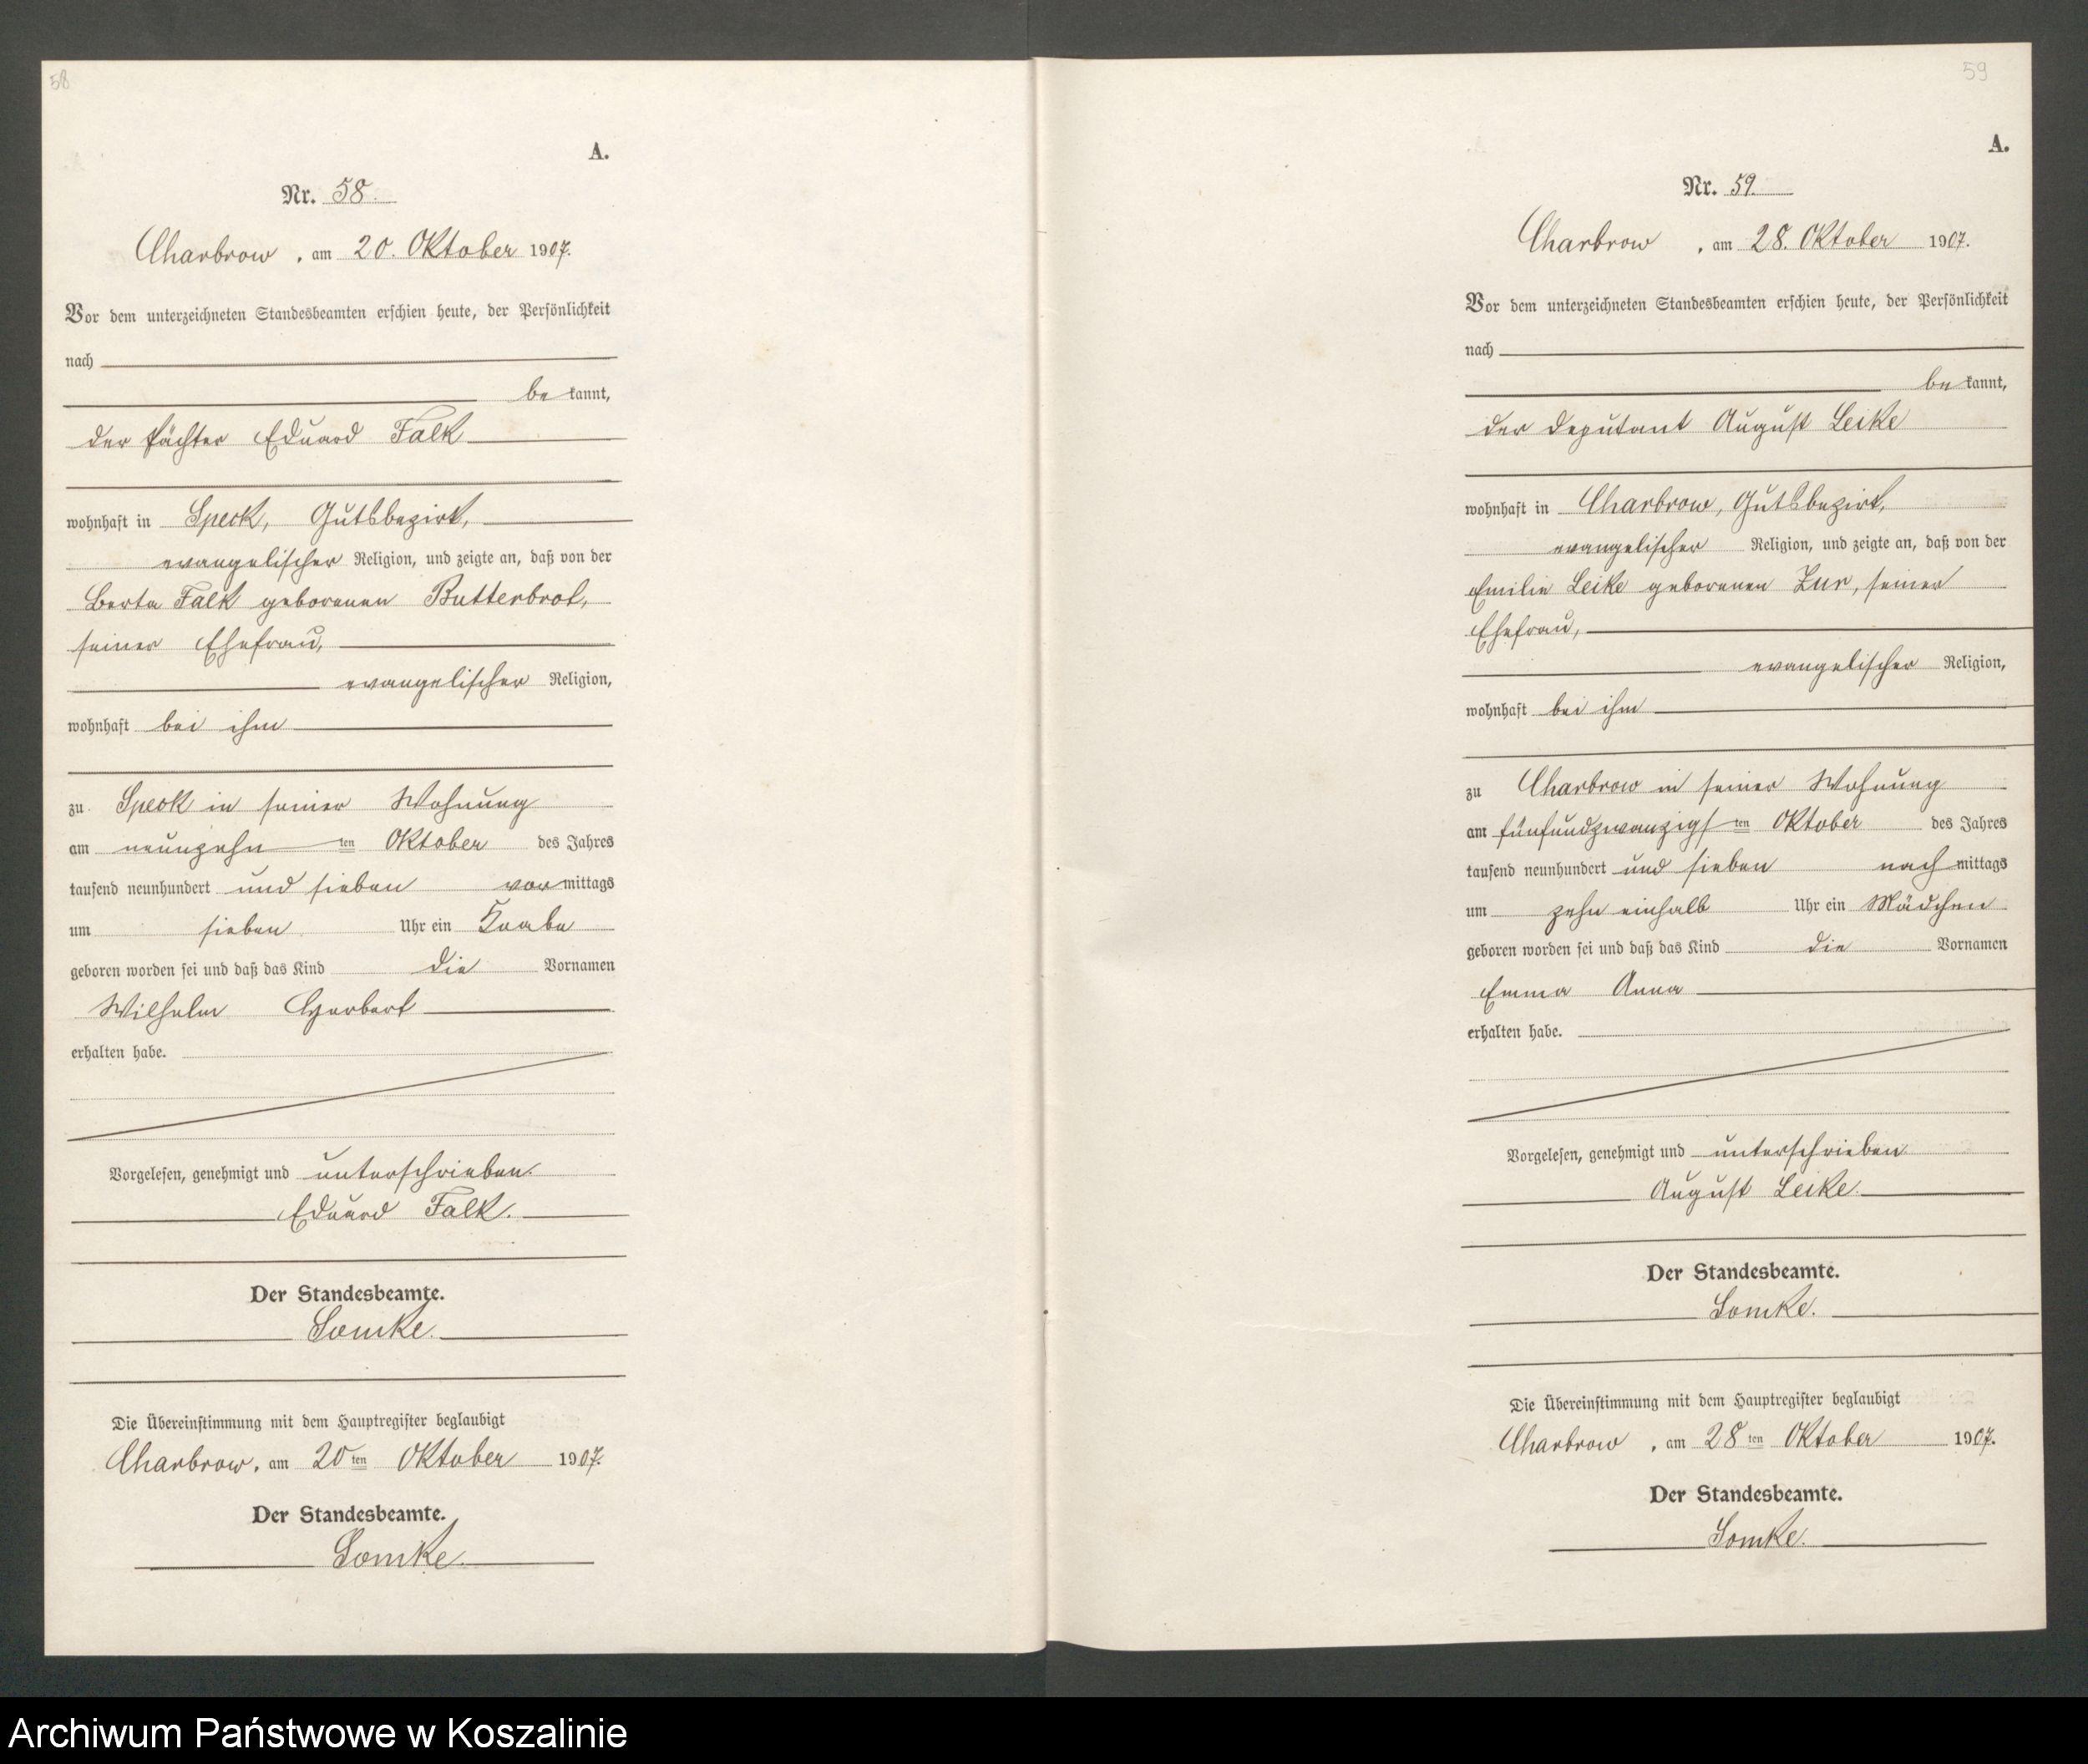 58
A.
Nr. 58.
Charbrow, am 20. Oktober 1907.
Vor dem unterzeichneten Standesbeamten erschien heute, der Persönlichkeit
nach
be kannt,
der Pächter Eduard Falk
wohnhaft in Speck, Gutsbezirk,
evangelischer Religion, und zeigte an, daß von der
Berta Falk geborenen Butterbrot,
seiner Ehefrau,
evangelischer Religion,
wohnhaft bei ihm
zu Speck in seiner Wohnung
am neunzehn ten Oktober des Jahres
tausend neunhundert und sieben vor mittags
um sieben Uhr ein Knabe
geboren worden sei und daß das Kind die Vornamen
Wilhelm Herbert
erhalten habe.
Vorgelesen, genehmigt und unterschrieben.
Eduard Falk.
Der Standesbeamte.
Somke.
Die Übereinstimmung mit dem Hauptregister beglaubigt
Charbrow, am 20 ten Oktober 1907.
Der Standesbeamte.
Somke.
59
A.
Nr. 59.
Charbrow, am 28. Oktober 1907.
Vor dem unterzeichneten Standesbeamten erschien heute, der Persönlichkeit
nach
be kannt,
der Deputant August Leike
wohnhaft in Charbrow, Gutsbezirk,
evangelischer Religion, und zeigte an, daß von der
Emilie Leike geborenen Zur, seiner
Ehefrau,
evangelischer Religion,
wohnhaft bei ihm
zu Charbrow in seiner Wohnung
am fünfundzwanzigs ten Oktober des Jahres
tausend neunhundert und sieben nach mittags
um zehn einhalb Uhr ein Mädchen
geboren worden sei und daß das Kind die Vornamen
Emma Anna
erhalten habe.
Vorgelesen, genehmigt und unterschrieben
August Leike.
Der Standesbeamte.
Somke.
Die Übereinstimmung mit dem Hauptregister beglaubigt
Charbrow, am 28 ten Oktober 1907.
Der Standesbeamte.
Somke.
Archiwum Państwowe w Koszalinie